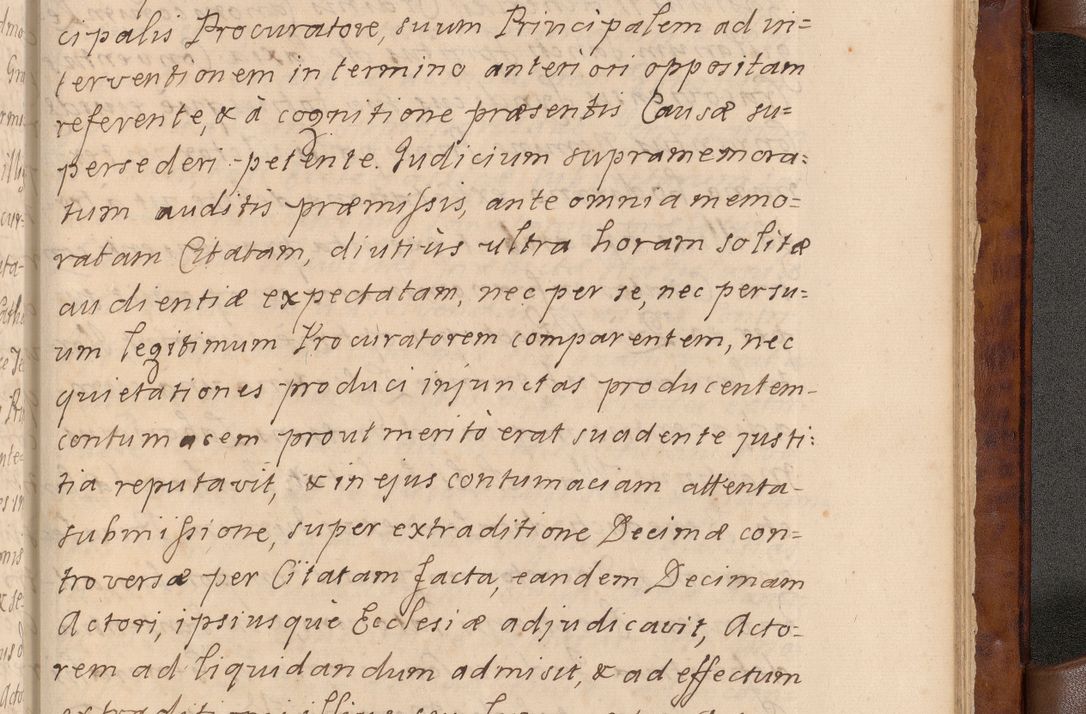 cipalis Procuratore, suum Principalem ad in=
terventionem in termino anteriori oppositam
referente, & à cognitione præsentis Causæ su=
persederi petente. Judicium supramemora=
tum auditis præmissis, ante omnia memo=
ratam Citatam, diutiùs ultra horam solitæ
audientiæ expectatam, nec per se, nec per su=
um legitimum Procuratorem comparentem, nec
quietationes produci injunctas producentem
contumacem prout meritò erat suadente justi=
tia reputavit, & in ejus contumaciam attenta
submissione, super extraditione Decimæ con=
troversæ per Citatam facta, eandem Decimam
Actori, ipsiusquè Ecclesiæ adjudicavit, Acto=
rem ad liquidandum admisit, & ad effectum